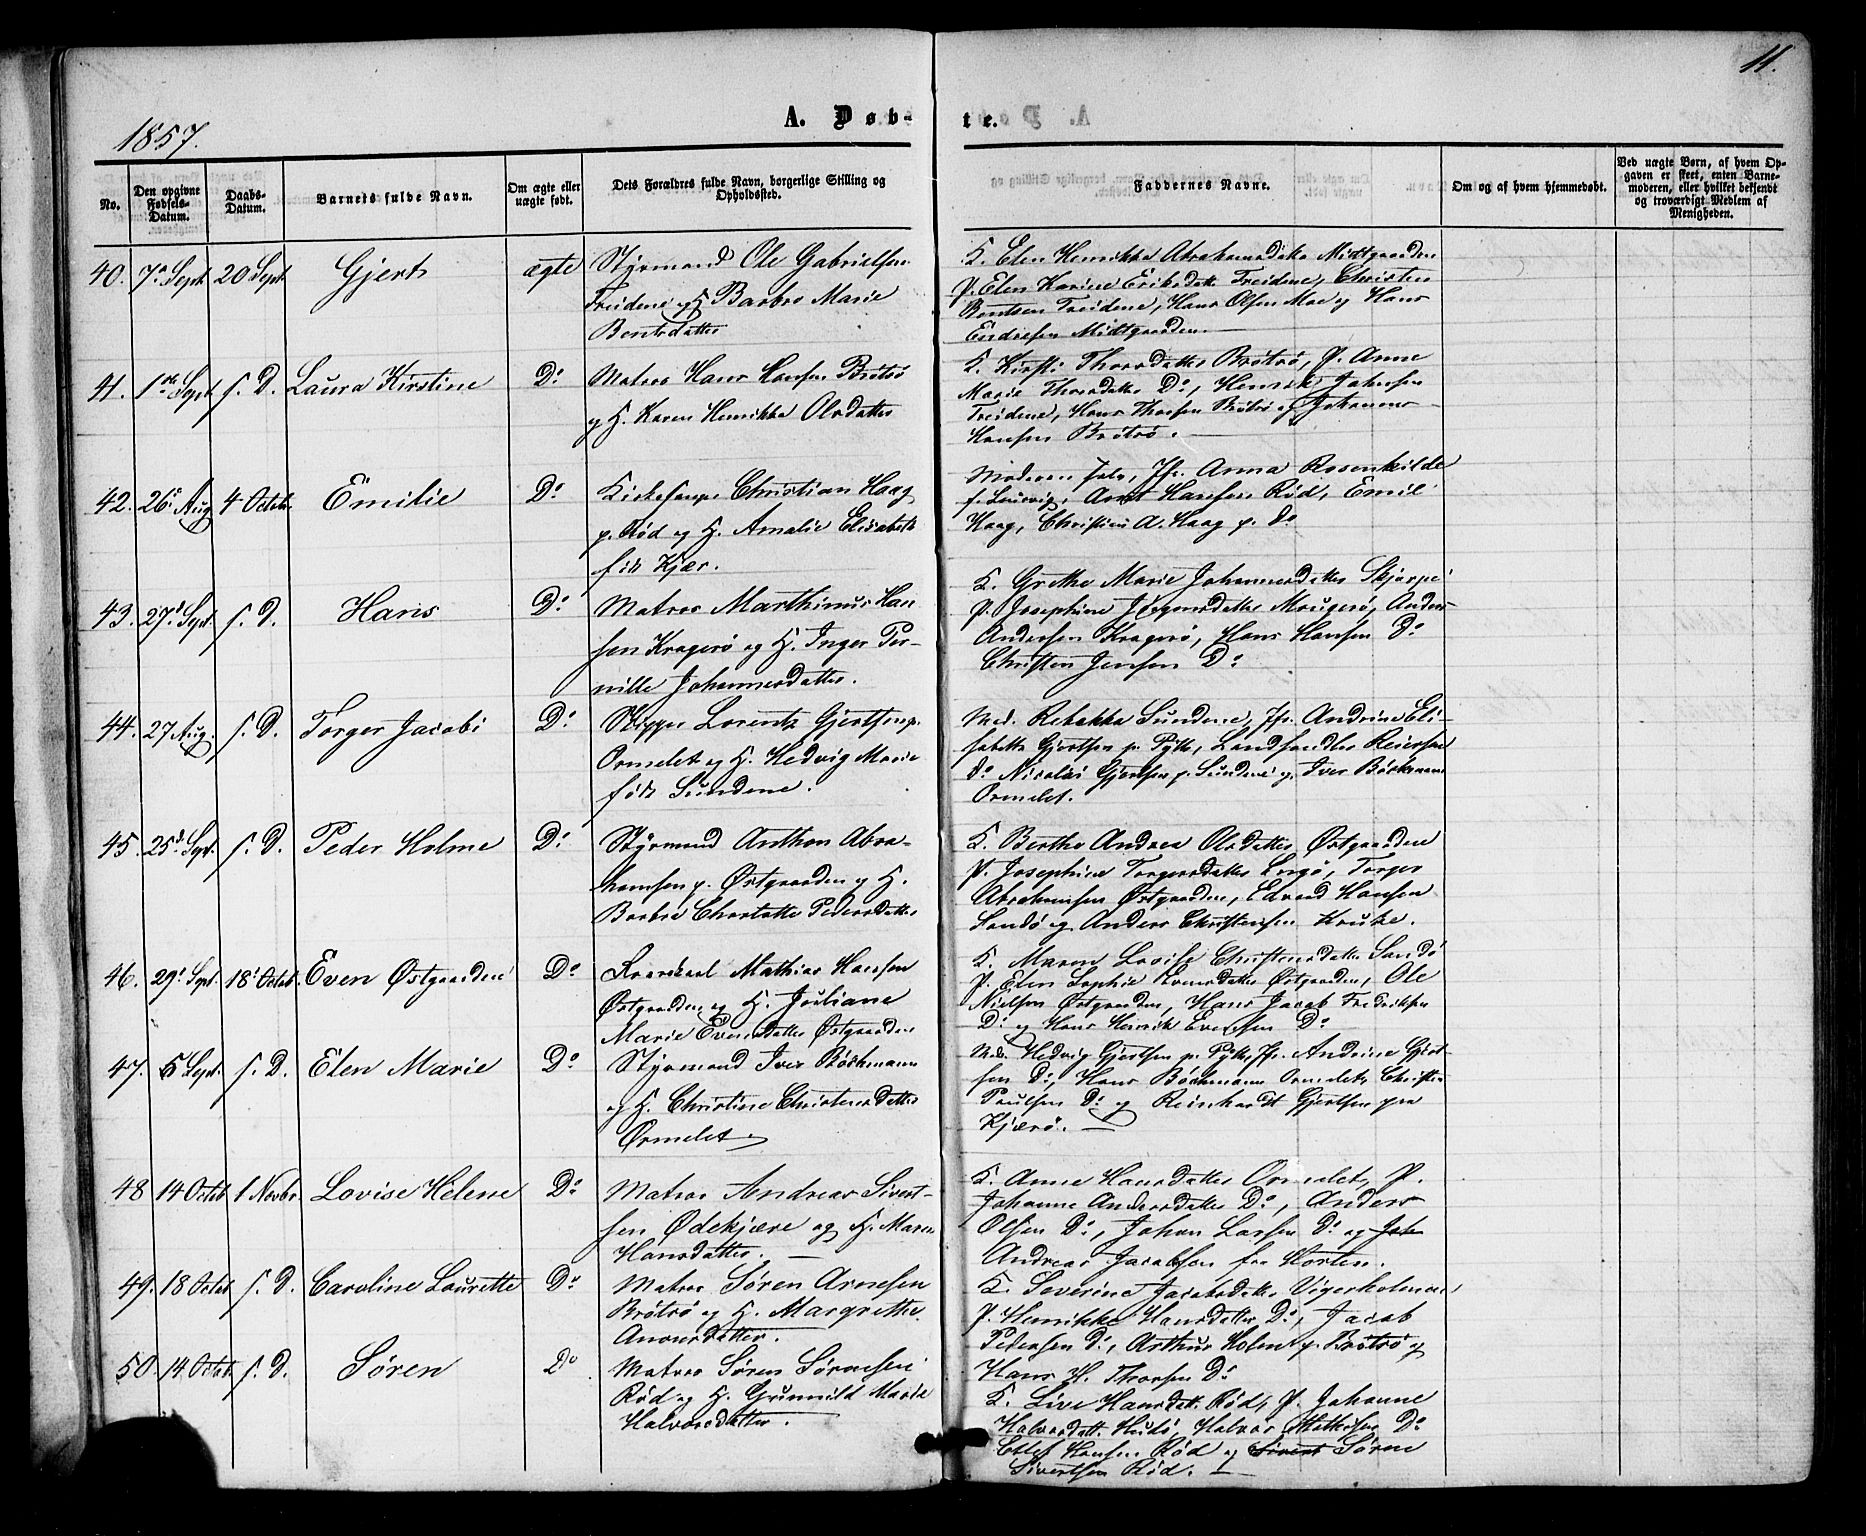 11.
1857.
A. Døb-
te.
No.
Den opgivne Fødsels-Datum.
Daabs-Datum.
Barnets fulde Navn.
Om ægte eller uægte født.
Dets Forældres fulde Navn, borgerlige Stilling og Opholdssted.
Faddernes Navne.
Om og af hvem hjemmedøbt.
Ved uægte Børn, af hvem Opgaven er skeet, enten Barnemoderen, eller hvilket bekjendt og troværdigt Medlem af Menigheden.
40. 7de Sept 20 Sept Gjert ægte Styrmand Ole Gabrielsen
Treidene og H. Barbro Marie
Bentsdatter
K. Elen Henrikke Abrahamsdatter Midtgaarden
P. Elen Karine Eriksdatt. Treidene, Christen
Bentsen Treidene, Hans Olsen Moe og Hans
Endresen Midtgaarden
41. 1ste Sept s. D. Laura Kirstine Do Matros Hans Hansen Brötsö
og H. Karen Henrikke Olsdatter
K. Kirsti Thorsdatter Brötsö, P. Anne
Marie Thorsdatter Do, Henrik Johnsen
Treidene, Hans Thorsen Brötsö og Johannes
Hansen Brötsö.
42. 26 Aug 4 Octob. Emilie Do Kirkesanger Christian Haag
p. Rød og H. Amalie Elisabeth
föd Kjær.
Moderen selv, Jfr. Anna Rosenkilde
f. Laurvig, Arnt Hansen Rød, Emil
Haag, Christian A. Haag p. do
43. 27de Sept. s. D. Hans Do Matros Marthinus Han
sen Kragerö og H. Inger Per-
nille Johannesdatter.
K. Grethe Marie Johannesdatter Skjerpe
P. Josephine Jörgensdatter Mougerö, Anders
Andersen Kragerö, Hans Hansen Do
Christen Jensen Do
44. 27 Aug. s. D. Torger Jacobi Do Skipper Lorentz Gjertsen p.
Ormelet og H. Hedvig Marie
föd Sundene.
Md. Rebekka Sundene, Jfr. Andrine Eli-
sabeth Gjertsen p. Pytte, Landhandler Reiersen
do Nicolai Gjertsen p. Sundene og Iver Böckmann
Ormelet.
45. 25de Sept. s. D. Peder Holme Do Styrmand Anthon Abra-
hamsen p. Østgaarden og H.
Barbro Charlotte Pedersdatter
K. Berthe Andrea Olsdatter Østgaarden
P. Josephine Torgersdatter Lorgö, Torger
Abrahamsen Østgaarden, Edvard Hansen
Sandö og Anders Christensen Kruke.
46. 29de Sept. 18de Octob. Even Østgaarden Do Mathias Hansen
Østgaarden og H. Juliane
Marie Evensdatter Østgaarden
K. Maren Lovise Christensdatter Sandö
P. Elen Sophie Evensdatter Østgaarden, Ole
Nielsen Østgaarden, Hans Jacob Fredriksen
Do og Hans Henrik Evensen Do
47. 5 Sept. s. D. Elen Marie Do Styrmand Iver Böckmann
og H. Christine Christensdatter
Ormelet
Md. Hedvig Gjertsen p. Pytte, Jfr. Andrine Gjert-
sen Do, Hans Böckmann Ormelet, Christen
Paulsen Do og Reinhardt Gjertsen fra
Kjærö.
48 14 Octob 1 Novbr Lovise Helene Do Matros Andreas Sivert-
sen Ødekjære og H. Maren
Hansdatter.
K. Anne Hansdatter Ormelet, P.
Johanne Andersdatter Do, Anders
Olsen Do, Johan Larsen Do og Joh
Andreas Jacobsen fra Horten.
49. 18 Octob s. D. Caroline Laurette Do Matros Søren Arnesen
Brötsö og H. Margrethe
Anonsdatter.
K. Severine Jacobsdatter Vigerholmen
P. Henrikke Hansdatter Do, Jacob
Pedersen Do, Arthur Holm p. Brötsö og
Hans H. Thorsen Do
50. 14 Octob. s. D. Sören Do Matros Søren Sörensen
Rød og H. Gunnild Marie
Halvorsdatter.
K. Live Hansdat. Rød, P. Johanne
Halvorsdatt. Hudö, Halvor Do
Hansen Rød og Sivert Sören
Sivertsen Rød.